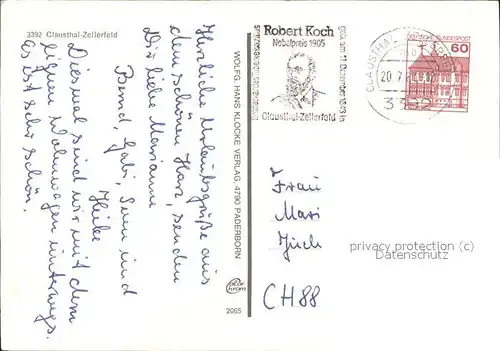 3392 Clausthal-Zellerfeld
Herzliche Urlaubsgrüße aus
dem schönen Harz, senden
Dir liebe Marianne
Bernd, Gabi, Sven und
Heike
Diesmal sind wir mit dem
eignen Wohnwagen unterwegs.
Es ist sehr schön.
WOLFG. HANS KLOCKE VERLAG, 4790 PADERBORN
2065
Robert Koch
Nobelpreis 1905
geb. am 11. Dezember 1843 in
Clausthal-Zellerfeld
CLAUSTHAL-
20.7.
3392
DEUTSCHE BUNDESPOST
60
Frau
Mari
CH88
privacy protection (c)
Datenschutz